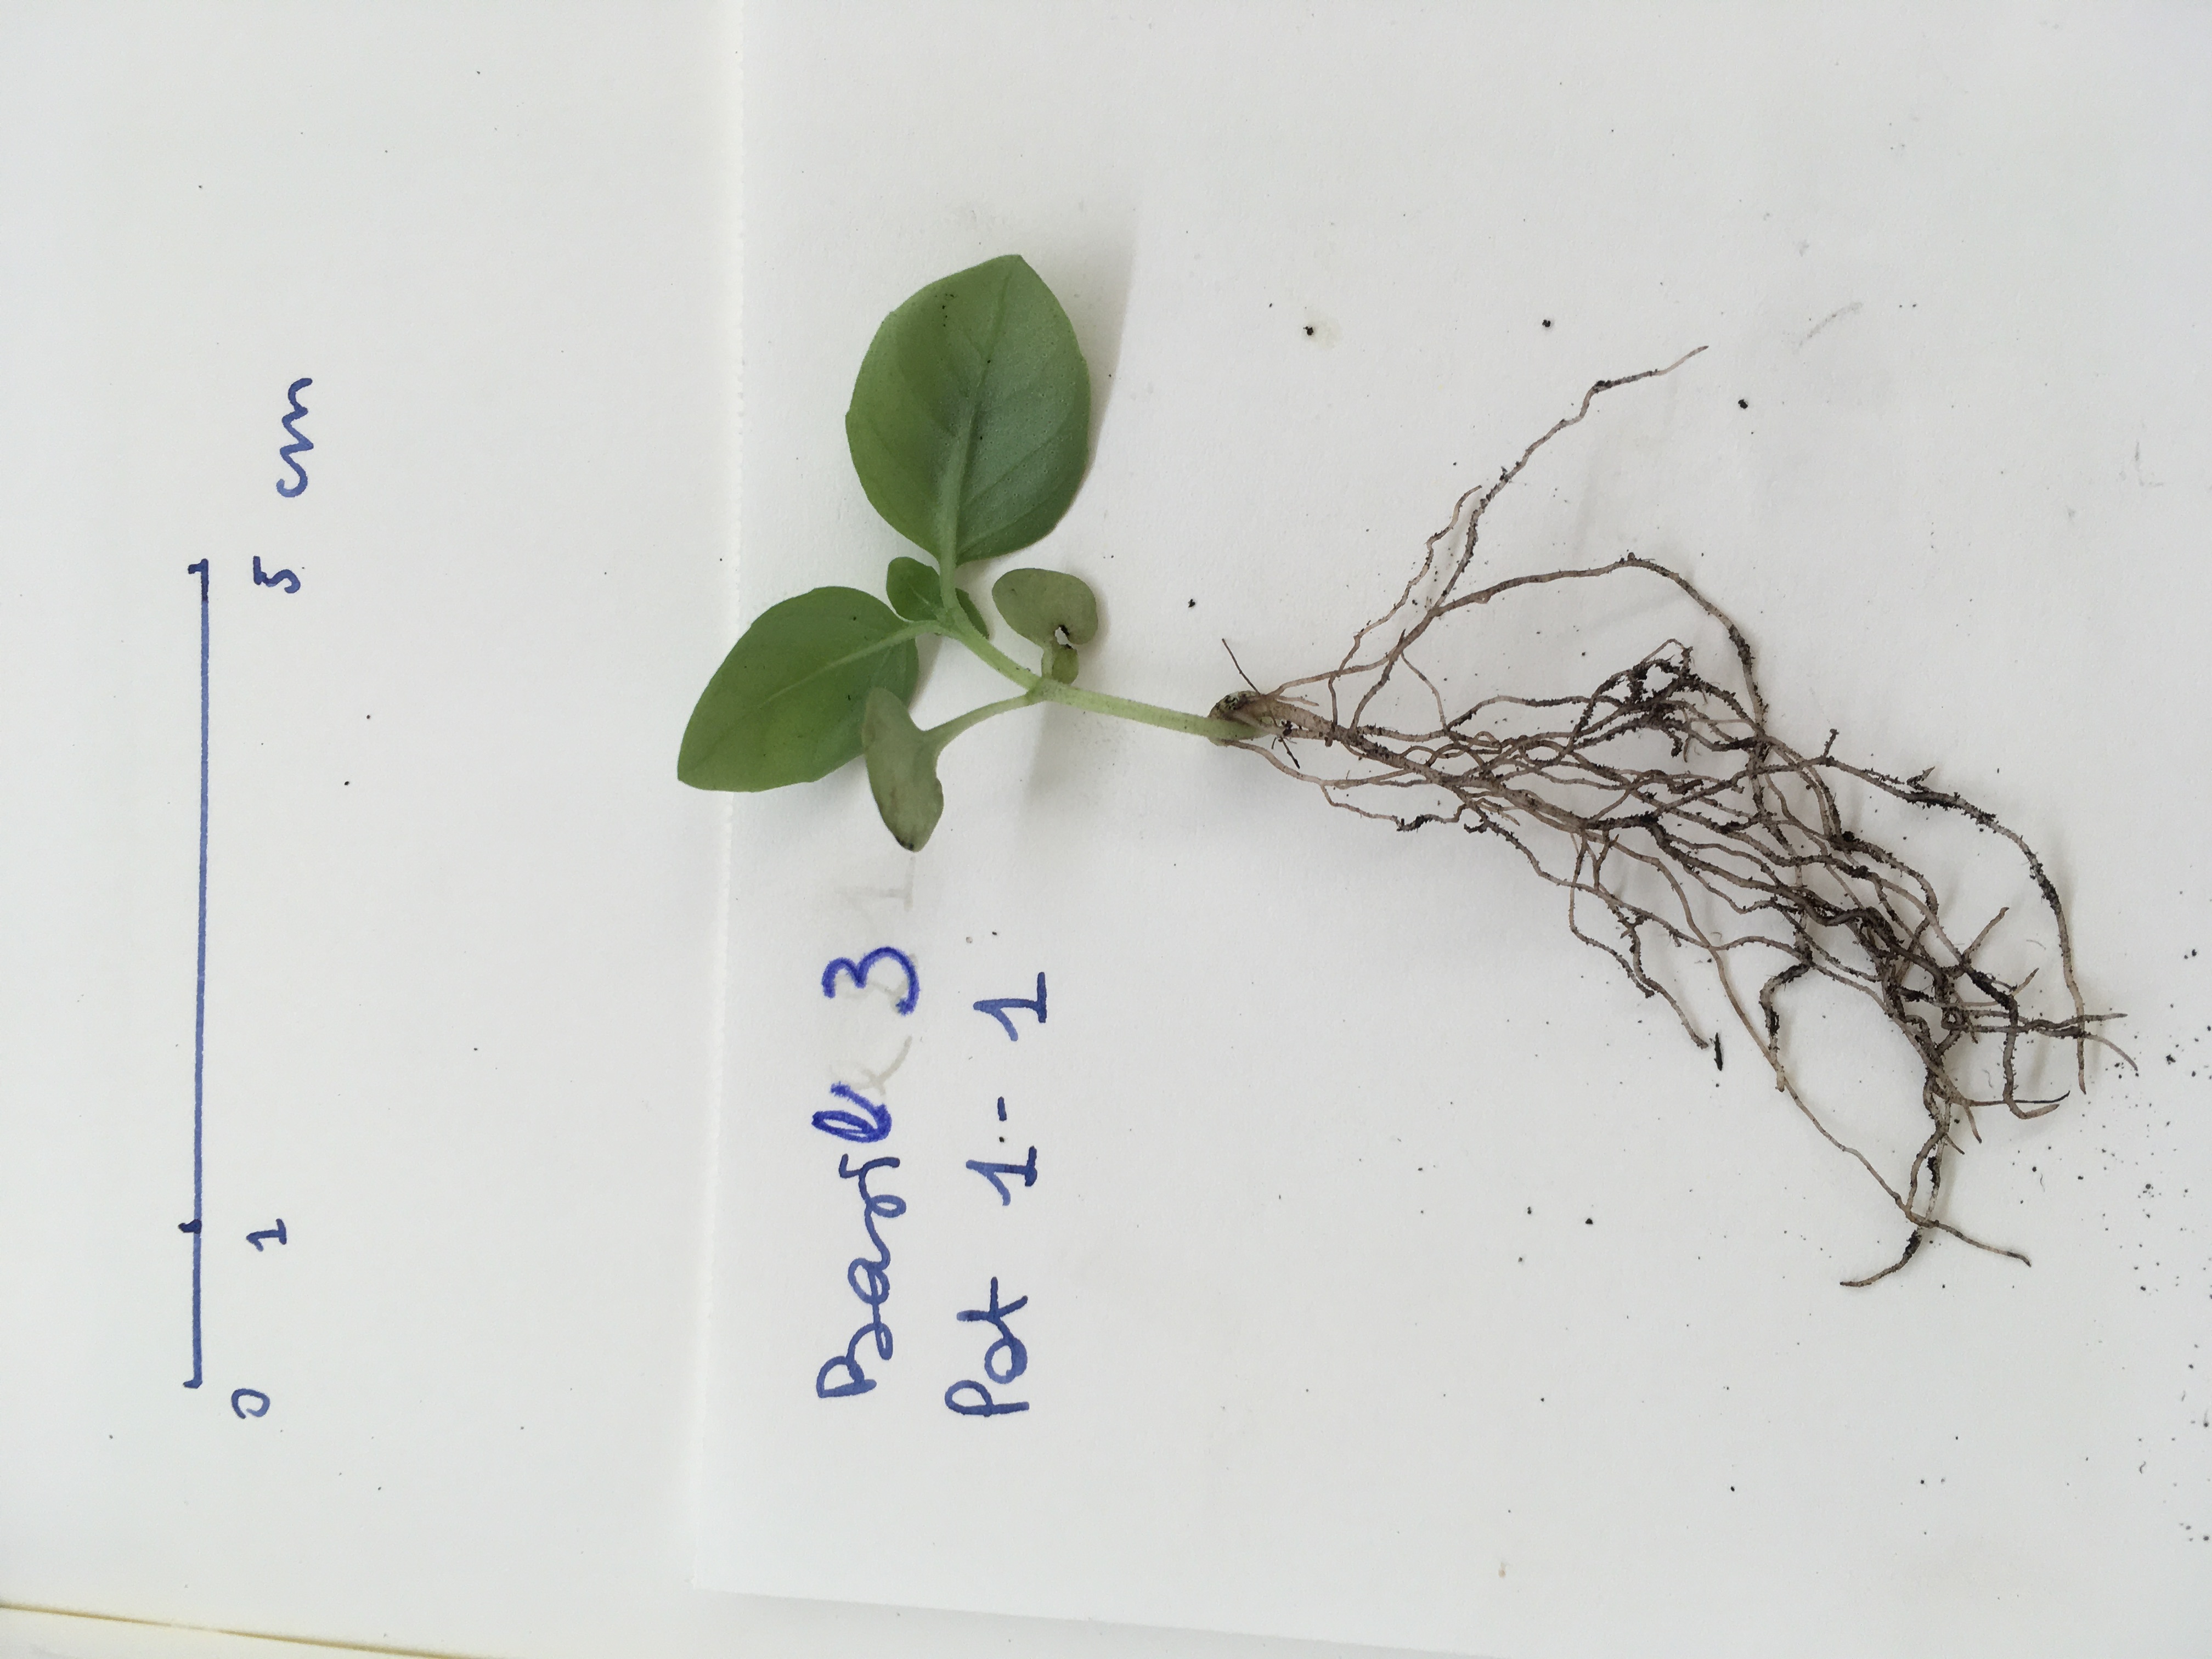 0 1 5 cm
Basil 3
Pot 1-1